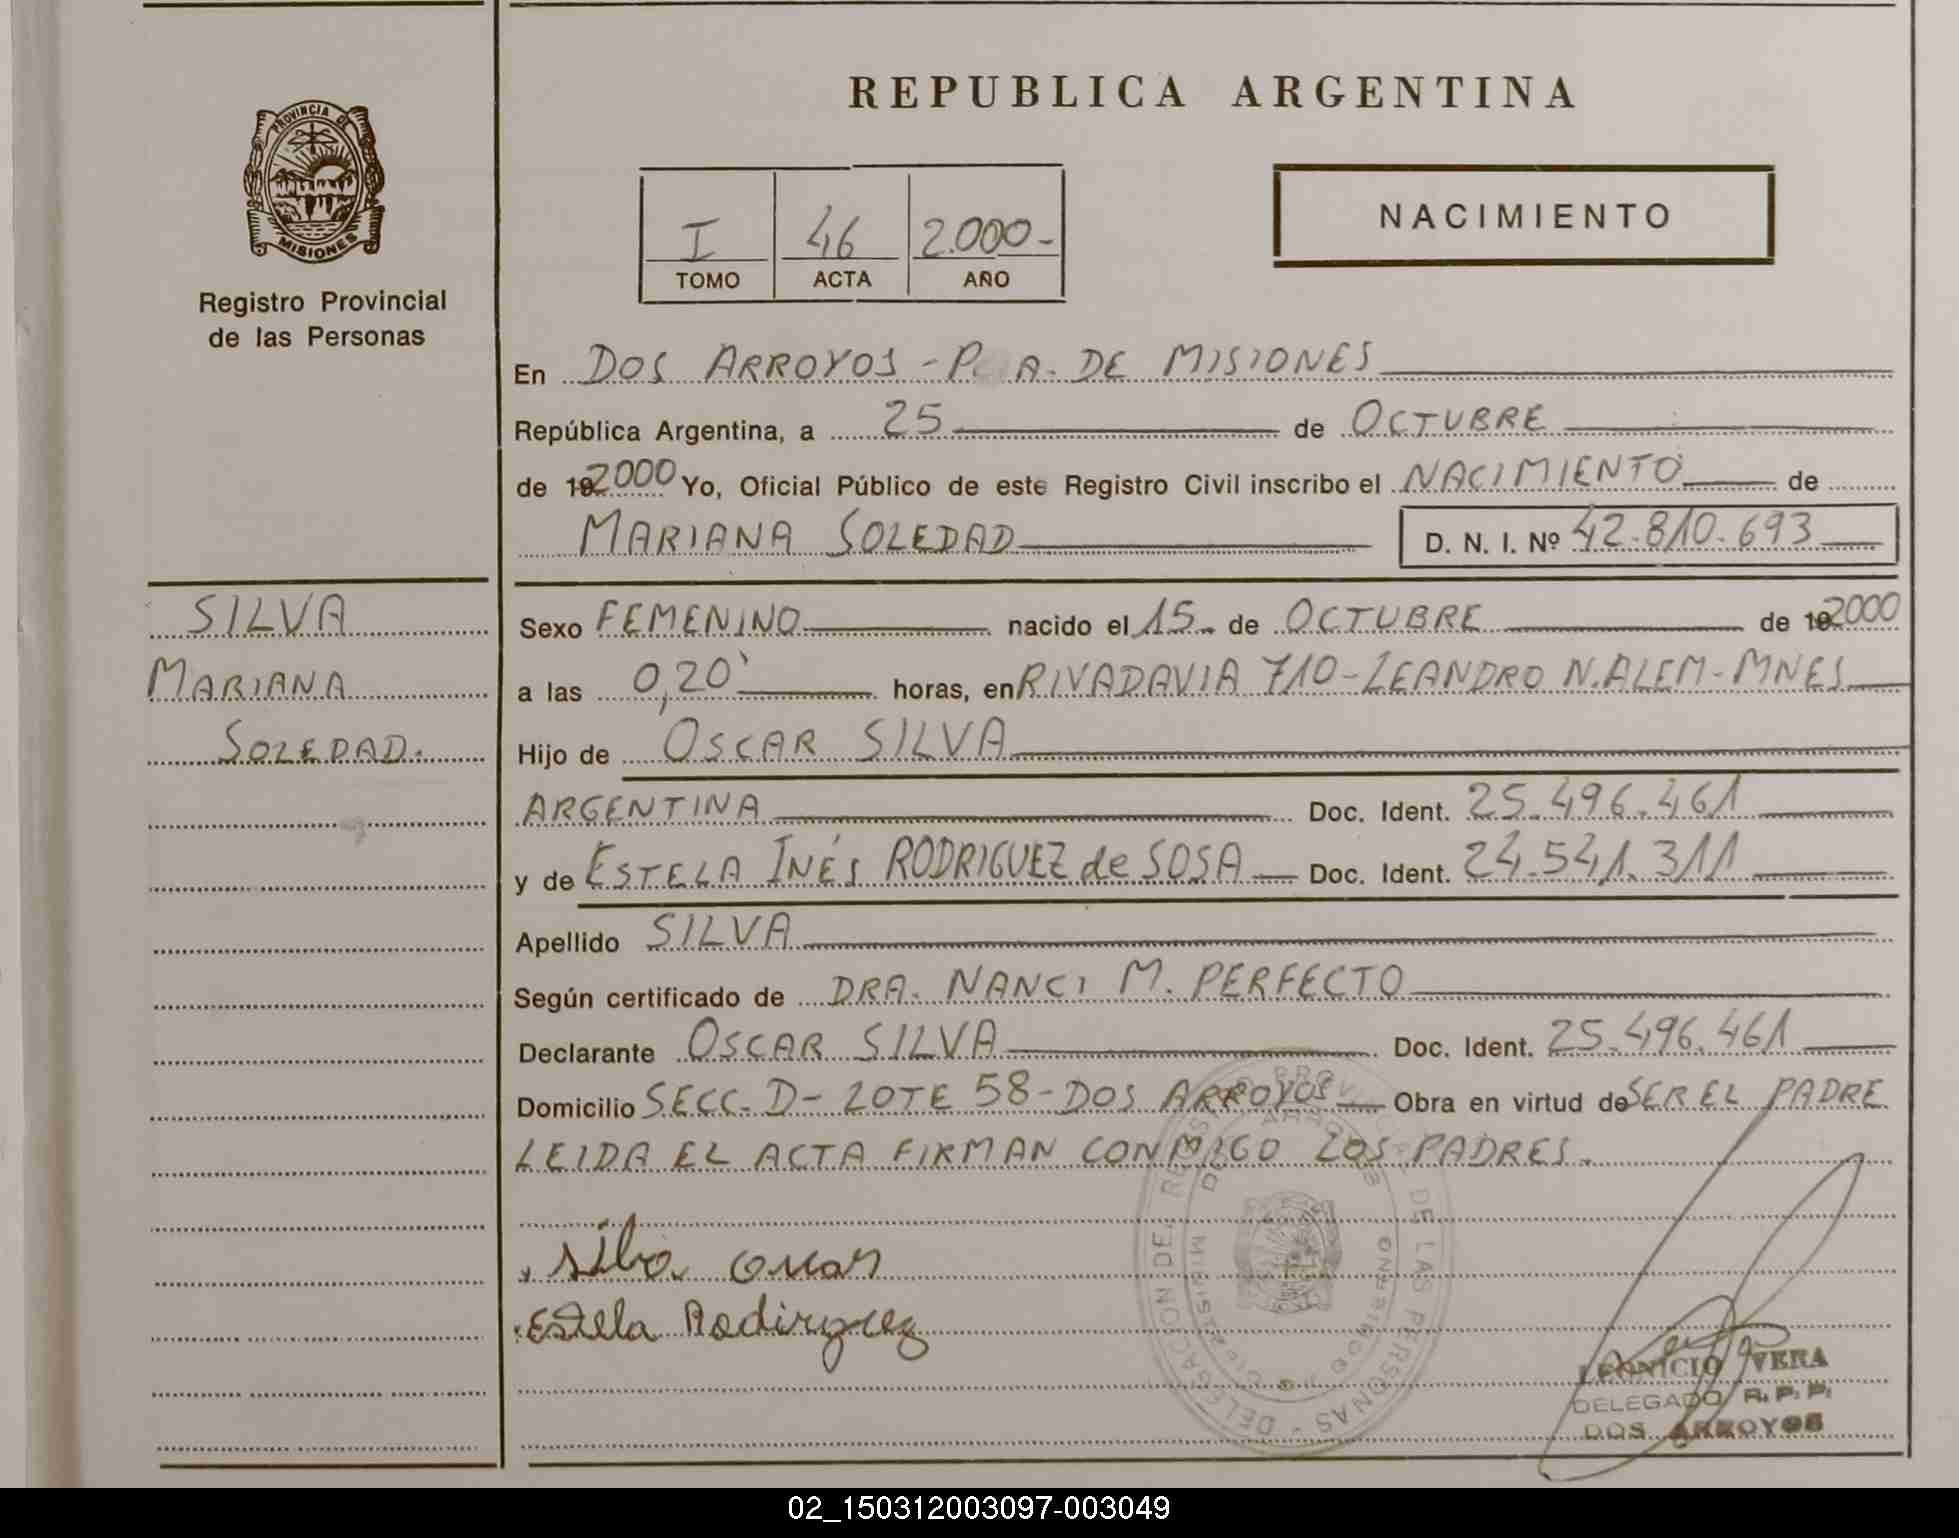 REPUBLICA ARGENTINA
PROVINCIA DE
MISIONES
Registro Provincial
de las Personas
I 46 2.000-
TOMO ACTA AÑO
NACIMIENTO
En DOS ARROYOS - PCIA. DE MISIONES
República Argentina, a 25 de OCTUBRE
de 192000 Yo, Oficial Público de este Registro Civil inscribo el NACIMIENTO de
MARIANA SOLEDAD D. N. I. Nº 42.810.693
SILVA
MARIANA
SOLEDAD.
Sexo FEMENINO nacido el 15 de OCTUBRE de 192000
a las 0,20' horas, en RIVADAVIA 710-LEANDRO N.ALEM-MNES
Hijo de OSCAR SILVA
ARGENTINA Doc. Ident. 25.496.461
y de ESTELA INÉS RODRIGUEZ de SOSA Doc. Ident. 24.541.311
Apellido SILVA
Según certificado de DRA. NANCI M. PERFECTO
Declarante OSCAR SILVA Doc. Ident. 25.496.461
Domicilio SECC. D- LOTE 58-DOS ARROYOS Obra en virtud de SER EL PADRE
LEIDA EL ACTA FIRMAN CONMIGO LOS PADRES.
Silva Oscar
Estela Rodirguez
LEONICIO VERA
DELEGADO R. P. P.
DOS ARROYOS
02_150312003097-003049